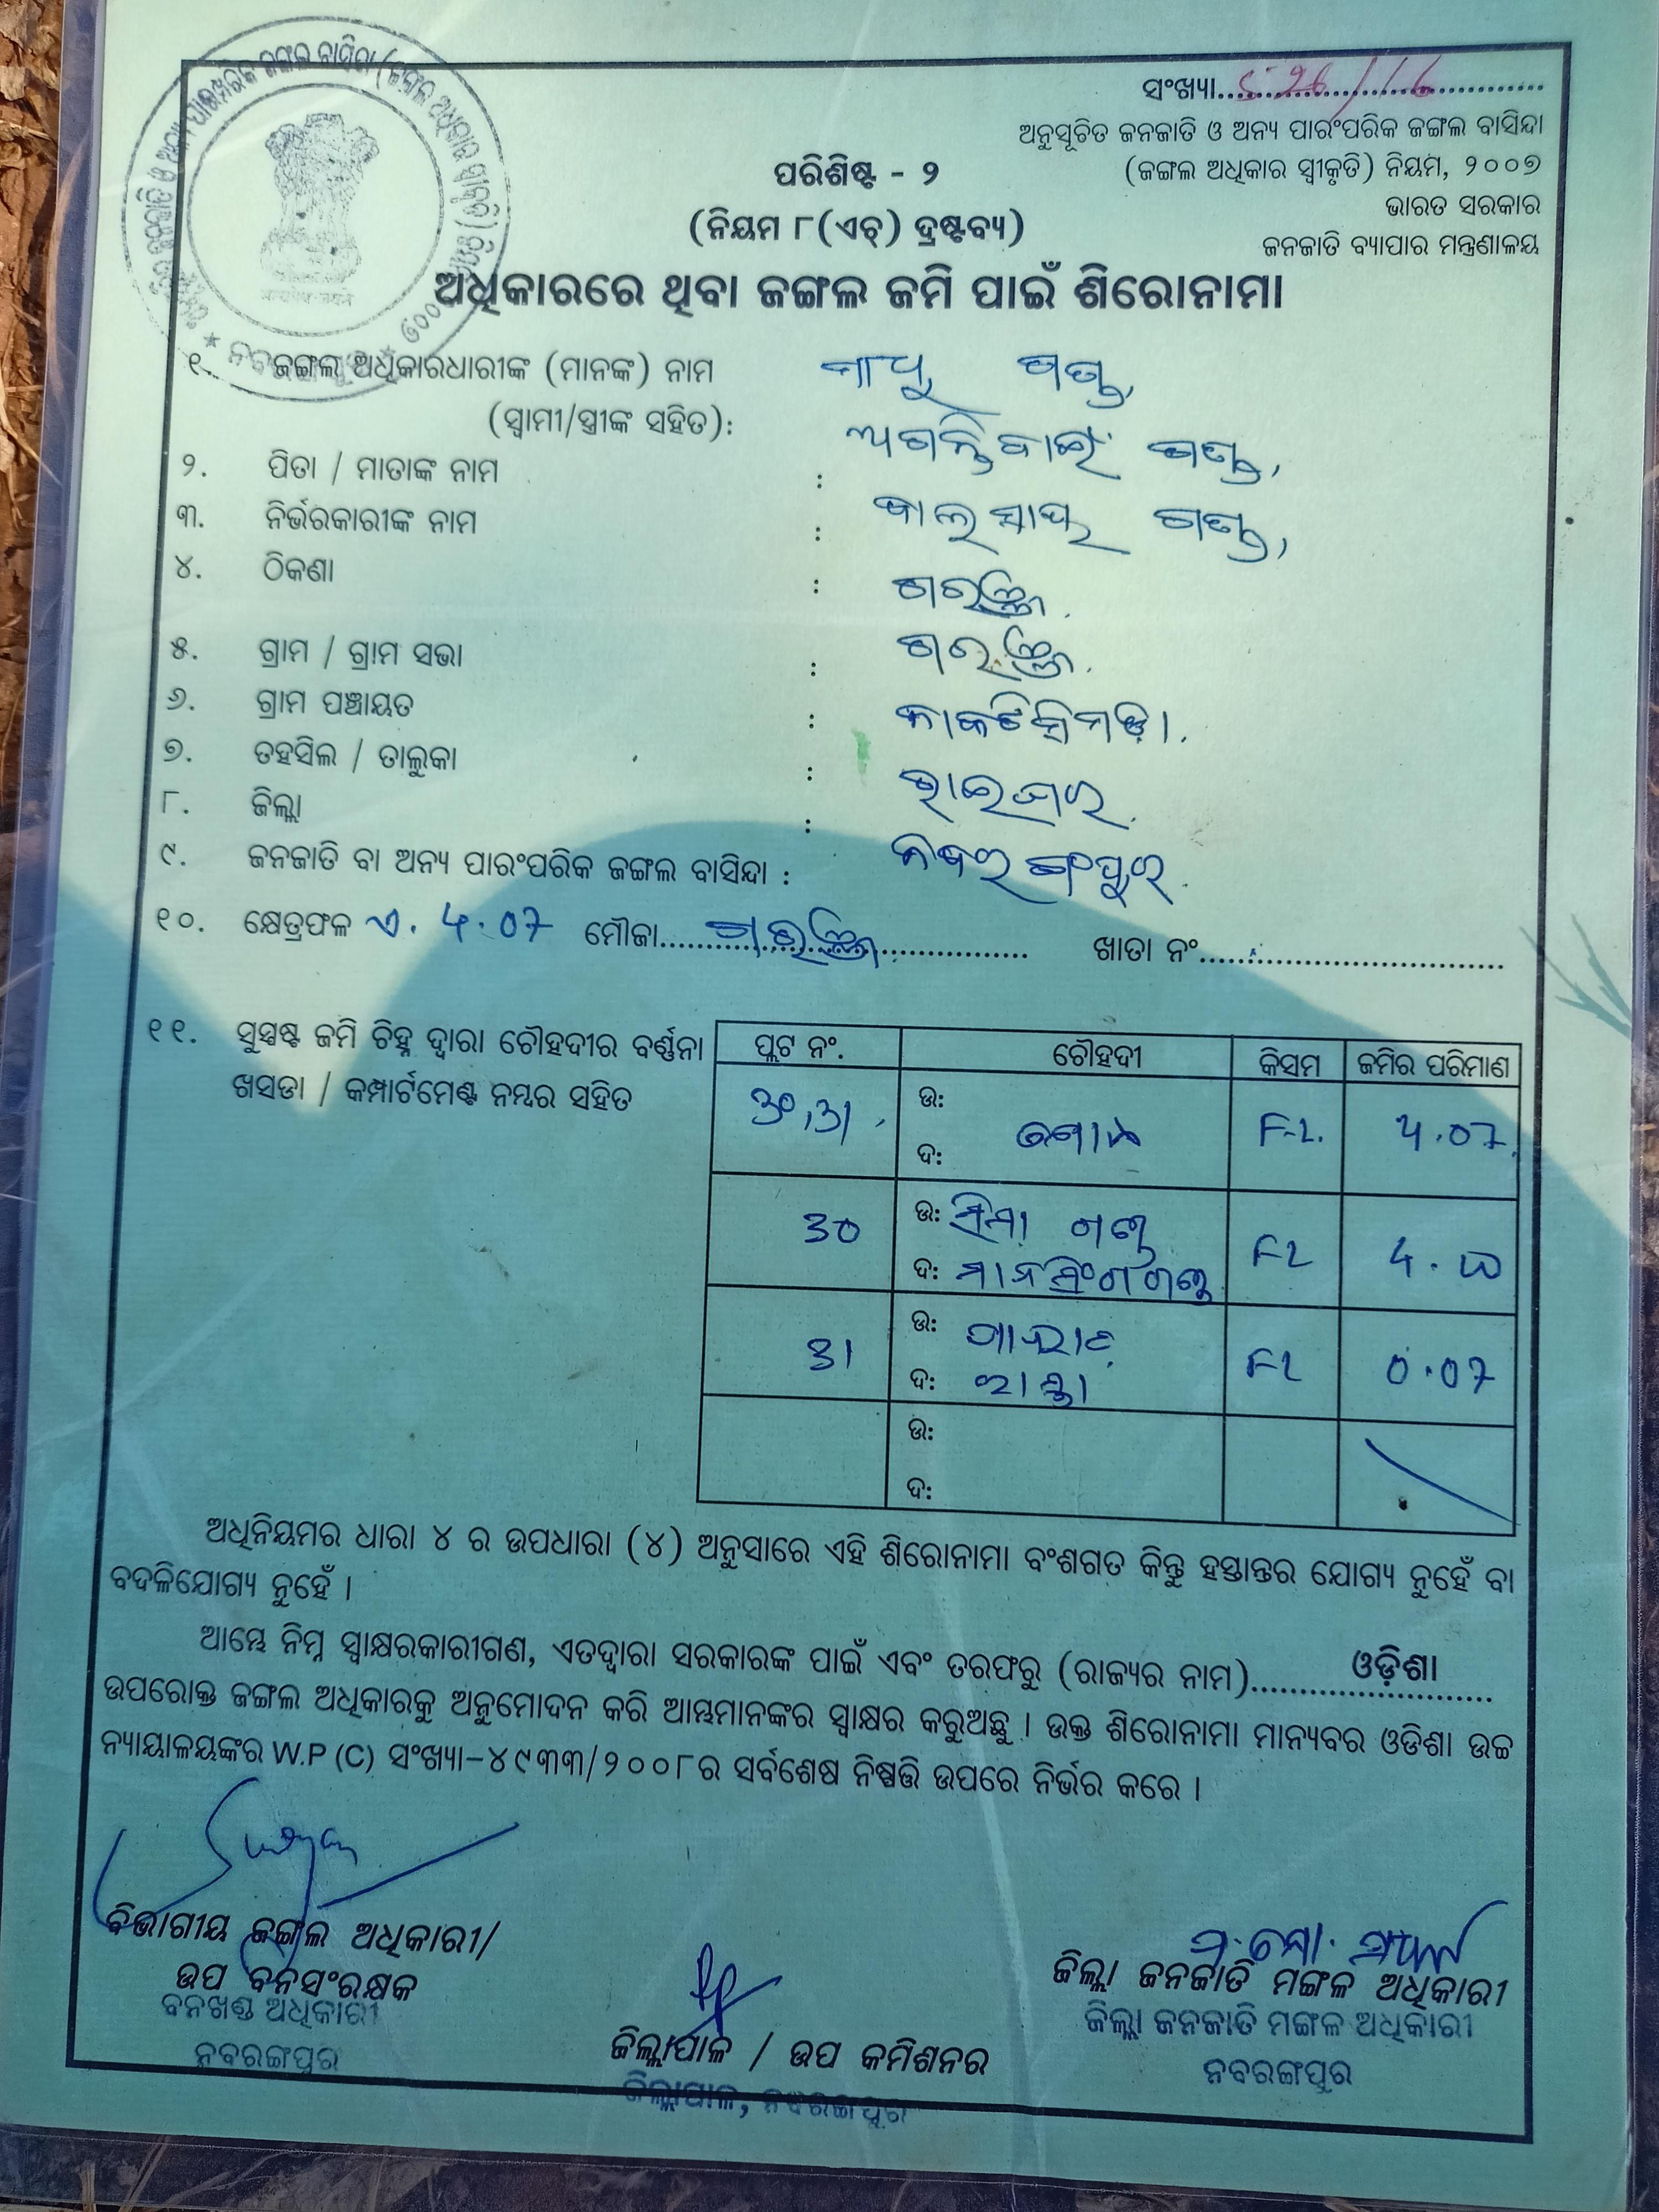 ସଂଖ୍ୟା.......................................
ଅନୁସୂଚିତ ଜନଜାତି ଓ ଅନ୍ୟ ପାରଂପରିକ ଜଙ୍ଗଲ ବାସିନ୍ଦା
(ଜଙ୍ଗଲ ଅଧିକାର ସ୍ୱୀକୃତି) ନିୟମ, ୨୦୦୭
ଭାରତ ସରକାର
ଜନଜାତି ବ୍ୟାପାର ମନ୍ତ୍ରଣାଳୟ
ପରିଶିଷ୍ଟ - ୨
(ନିୟମ ୮(ଏଚ୍) ଦ୍ରଷ୍ଟବ୍ୟ)
ଅଧିକାରରେ ଥିବା ଜଙ୍ଗଲ ଜମି ପାଇଁ ଶିରୋନାମା
୧. ଜଙ୍ଗଲ ଅଧିକାରଧାରୀଙ୍କ (ମାନଙ୍କ) ନାମ ଗଣ୍ଡ,
(ସ୍ୱାମୀ/ସ୍ତ୍ରୀଙ୍କ ସହିତ): ଗଣ୍ଡ,
୨. ପିତା / ମାତାଙ୍କ ନାମ : ଗଣ୍ଡ,
୩. ନିର୍ଭରକାରୀଙ୍କ ନାମ :
୪. ଠିକଣା :
୫. ଗ୍ରାମ / ଗ୍ରାମ ସଭା :
୬. ଗ୍ରାମ ପଞ୍ଚାୟତ :
୭. ତହସିଲ / ତାଲୁକା : ରାଇଘର
୮. ଜିଲ୍ଲା : ନବରଙ୍ଗପୁର
୯. ଜନଜାତି ବା ଅନ୍ୟ ପାରଂପରିକ ଜଙ୍ଗଲ ବାସିନ୍ଦା :
୧୦. କ୍ଷେତ୍ରଫଳ ଏ. 4.07 ମୌଜା..................................... ଖାତା ନଂ................................
୧୧. ସୁସ୍ପଷ୍ଟ ଜମି ଚିହ୍ନ ଦ୍ୱାରା ଚୌହଦୀର ବର୍ଣ୍ଣନା
ଖସଡା / କମ୍ପାର୍ଟମେଣ୍ଟ ନମ୍ବର ସହିତ
ପ୍ଲଟ ନଂ. ଚୌହଦୀ କିସମ ଜମିର ପରିମାଣ
30,31, ଉ: ଦ: F.L. 4.07
30 ଉ: ଗଣ୍ଡ FL
ଦ: ମାନସିଂଗ ଗଣ୍ଡ
31 ଉ: FL 0.07
ଦ: ରାସ୍ତା
ଉ:
ଦ:
ଅଧିନିୟମର ଧାରା ୪ ର ଉପଧାରା (୪) ଅନୁସାରେ ଏହି ଶିରୋନାମା ବଂଶଗତ କିନ୍ତୁ ହସ୍ତାନ୍ତର ଯୋଗ୍ୟ ନୁହେଁ ବା
ବଦଳିଯୋଗ୍ୟ ନୁହେଁ ।
ଆମ୍ଭେ ନିମ୍ନ ସ୍ୱାକ୍ଷରକାରୀଗଣ, ଏତଦ୍ୱାରା ସରକାରଙ୍କ ପାଇଁ ଏବଂ ତରଫରୁ (ରାଜ୍ୟର ନାମ)..........ଓଡ଼ିଶା..........
ଉପରୋକ୍ତ ଜଙ୍ଗଲ ଅଧିକାରକୁ ଅନୁମୋଦନ କରି ଆମ୍ଭମାନଙ୍କର ସ୍ୱାକ୍ଷର କରୁଅଛୁ । ଉକ୍ତ ଶିରୋନାମା ମାନ୍ୟବର ଓଡିଶା ଉଚ୍ଚ
ନ୍ୟାୟାଳୟଙ୍କର W.P (C) ସଂଖ୍ୟା-୪୯୩୩/୨୦୦୮ର ସର୍ବଶେଷ ନିଷ୍ପତ୍ତି ଉପରେ ନିର୍ଭର କରେ ।
ବିଭାଗୀୟ ଜଙ୍ଗଲ ଅଧିକାରୀ/
ଉପ ବନସଂରକ୍ଷକ
ବନଖଣ୍ଡ ଅଧିକାରୀ
ନବରଙ୍ଗପୁର
ଜିଲ୍ଲାପାଳ / ଉପ କମିଶନର
ଜିଲ୍ଲାପାଳ, ନବରଙ୍ଗପୁର
ଜିଲ୍ଲା ଜନଜାତି ମଙ୍ଗଳ ଅଧିକାରୀ
ଜିଲ୍ଲା ଜନଜାତି ମଙ୍ଗଳ ଅଧିକାରୀ
ନବରଙ୍ଗପୁର